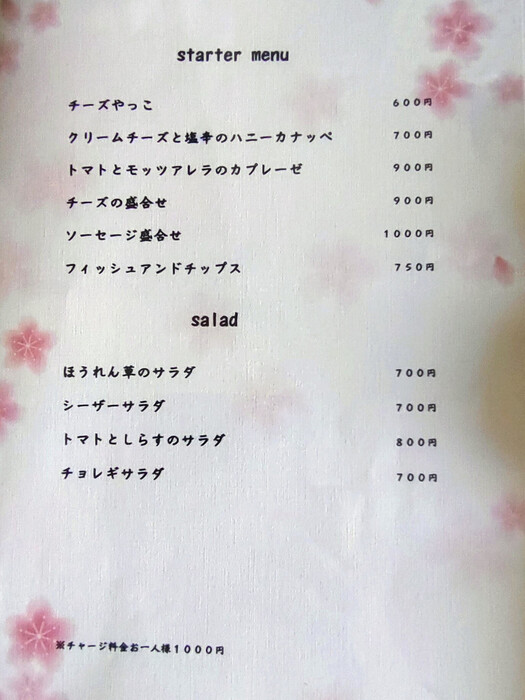 starter menu
チーズやっこ ６００円
クリームチーズと塩辛のハニーカナッペ ７００円
トマトとモッツアレラのカプレーゼ ９００円
チーズの盛合せ ９００円
ソーセージ盛合せ １０００円
フィッシュアンドチップス ７５０円
salad
ほうれん草のサラダ ７００円
シーザーサラダ ７００円
トマトとしらすのサラダ ８００円
チョレギサラダ ７００円
※チャージ料金お一人様１０００円